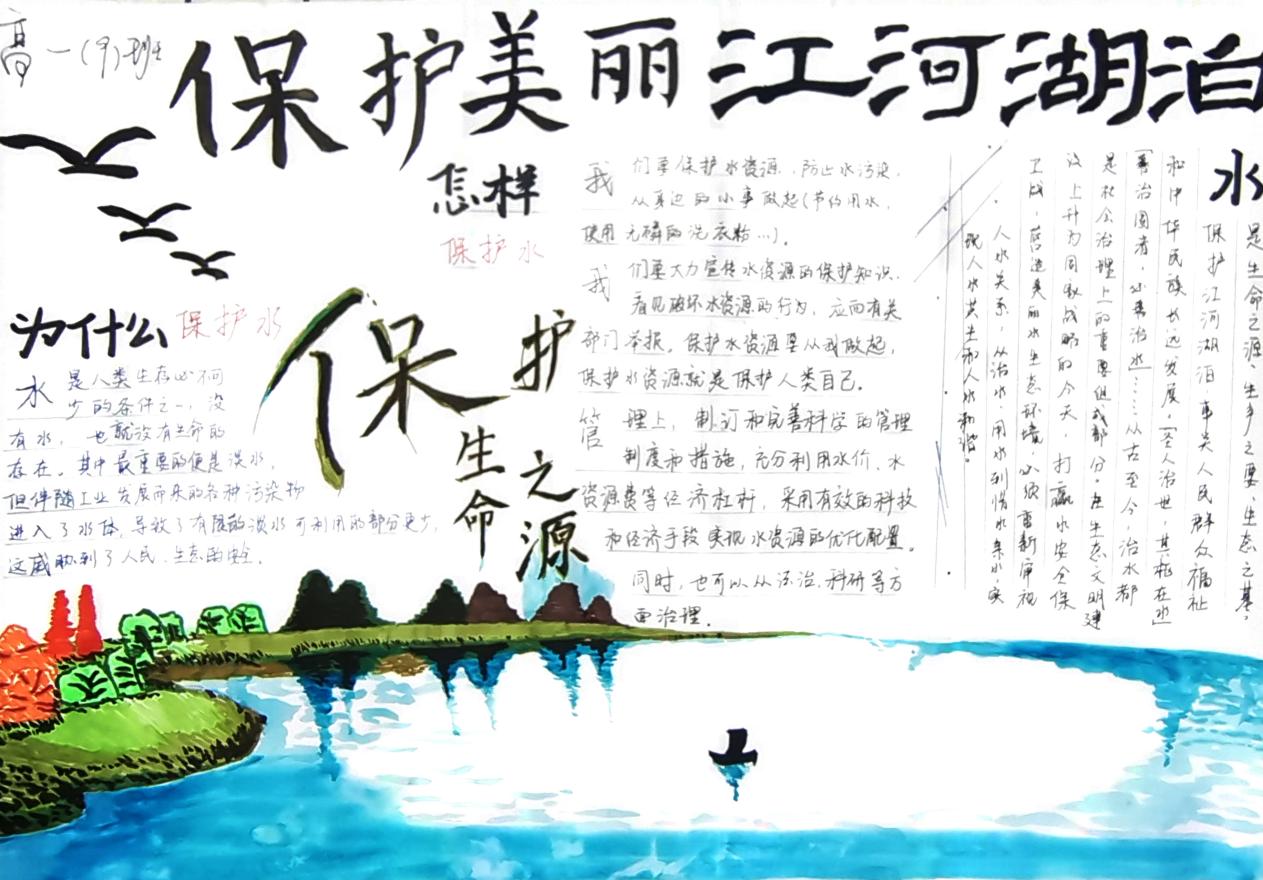 高一(9)班
保护美丽江河湖泊
为什么保护水
水是人类生存必不可
少的条件之一，没
有水，也就没有生命的
存在。其中最重要的便是淡水，
但伴随工业发展而来的各种污染物
进入了水体，导致了有限的淡水可利用的部分更少，
这威胁到了人民、生态的安全。
保护
生命
之源
怎样
保护水
我们要保护水资源，防止水污染，
从身边的小事做起(节约用水，
使用无磷的洗衣粉…)。
我们要大力宣传水资源的保护知识，
看见破坏水资源的行为，应向有关
部门举报。保护水资源要从我做起，
保护水资源就是保护人类自己。
管理上，制订和完善科学的管理
制度和措施，充分利用水价、水
资源费等经济杠杆，采用有效的科技
和经济手段实现水资源的优化配置。
同时，也可以从法治、科研等方
面治理。
水是生命之源、生产之要、生态之基，
保护江河湖泊事关人民群众福祉
和中华民族长远发展，「圣人治世，其枢在水」
「善治国者，必善治水」……从古至今，治水都
是社会治理上的重要组成部分。在生态文明建
设上升为国家战略的今天，打赢水安全保
卫战，营造美丽水生态环境，必须重新审视
人水关系，从治水、用水到惜水、亲水，实
现人水共生和人水和谐。